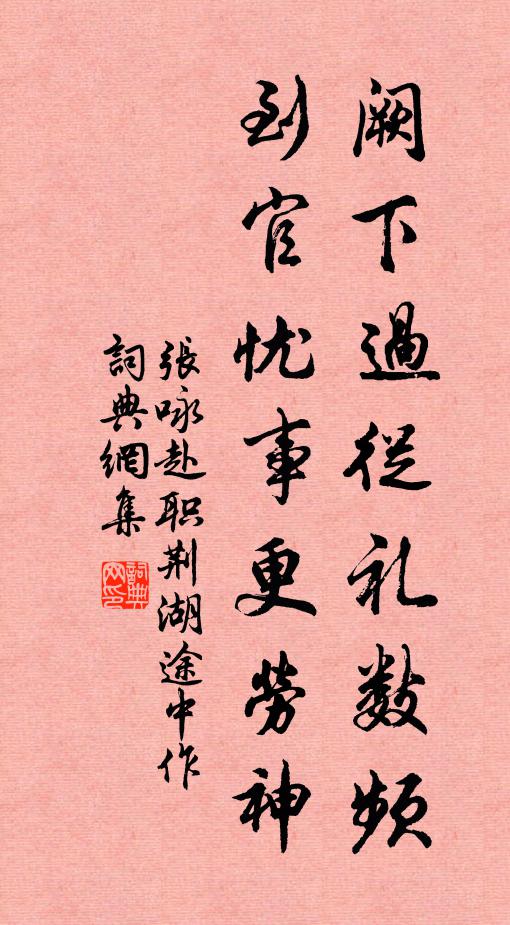 闕下過從礼数頻
到官忧事更勞神
張咏赴职荆湖途中作
詞典網集
詞典网印